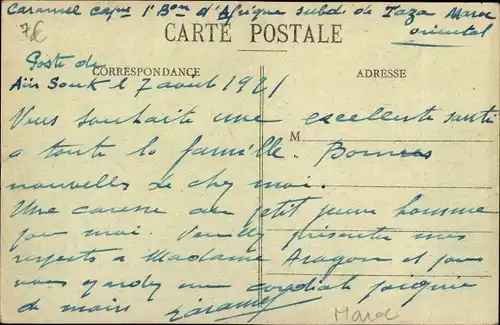 Caramel Cap<sup>al</sup> 1<sup>r</sup> B<sup>on</sup> d'Afrique subd. de Taza Maroc
oriental
7€
CARTE POSTALE
CORRESPONDANCE
ADRESSE
Poste de
Aïn Souk l 7 avril 1921
Vous souhaite une excellente santé
M
a toute la famille. Bonnes
nouvelles de chez moi.
Une caresse au petit jeune homme
pour moi. Veuillez présenter mes
respects a Madame Aragon et pour
vous gardez une cordiale poignée
de main
Maroc